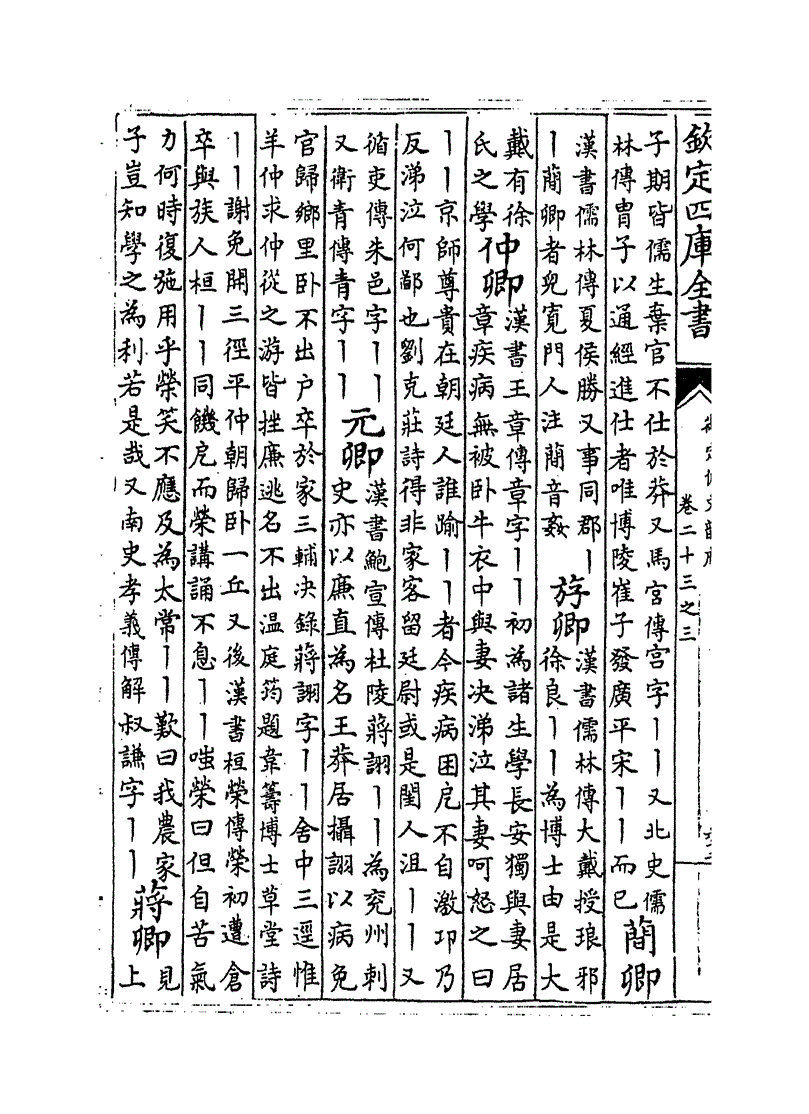 欽定四庫全書
卷二十三之三
子期皆儒生棄官不仕於莽又馬宮傳宮字丨丨又北史儒
林傳胄子以通經進仕者唯博陵崔子發廣平宋丨丨而已
蕳卿
漢書儒林傳夏侯勝又事同郡丨
丨蕳卿者兒寛門人注蕳音姦
斿卿
漢書儒林傳大戴授琅邪
徐良丨丨為博士由是大
戴有徐
氏之學
仲卿
漢書王章傳章字丨丨初為諸生學長安獨與妻居
章疾病無被卧牛衣中與妻决涕泣其妻呵怒之曰
丨丨京師尊貴在朝廷人誰踰丨丨者今疾病困戹不自激卬乃
反涕泣何鄙也劉克莊詩得非家客留廷尉或是閨人沮丨丨又
循吏傳朱邑字丨丨
又衛青傳青字丨丨
元卿
漢書鮑宣傳杜陵蔣詡丨丨為兖州刺
史亦以廉直為名王莽居攝詡以病免
官歸鄉里卧不出户卒於家三輔决錄蔣詡字丨丨舍中三逕惟
羊仲求仲從之游皆挫廉逃名不出温庭筠題韋籌博士草堂詩
丨丨謝免開三徑平仲朝歸卧一丘又後漢書桓榮傳榮初遭倉
卒與族人桓丨丨同饑戹而榮講誦不息丨丨嗤榮曰但自苦氣
力何時復施用乎榮笑不應及為太常丨丨歎曰我農家
子豈知學之為利若是哉又南史孝義傳解叔謙字丨丨
蔣卿
見
上